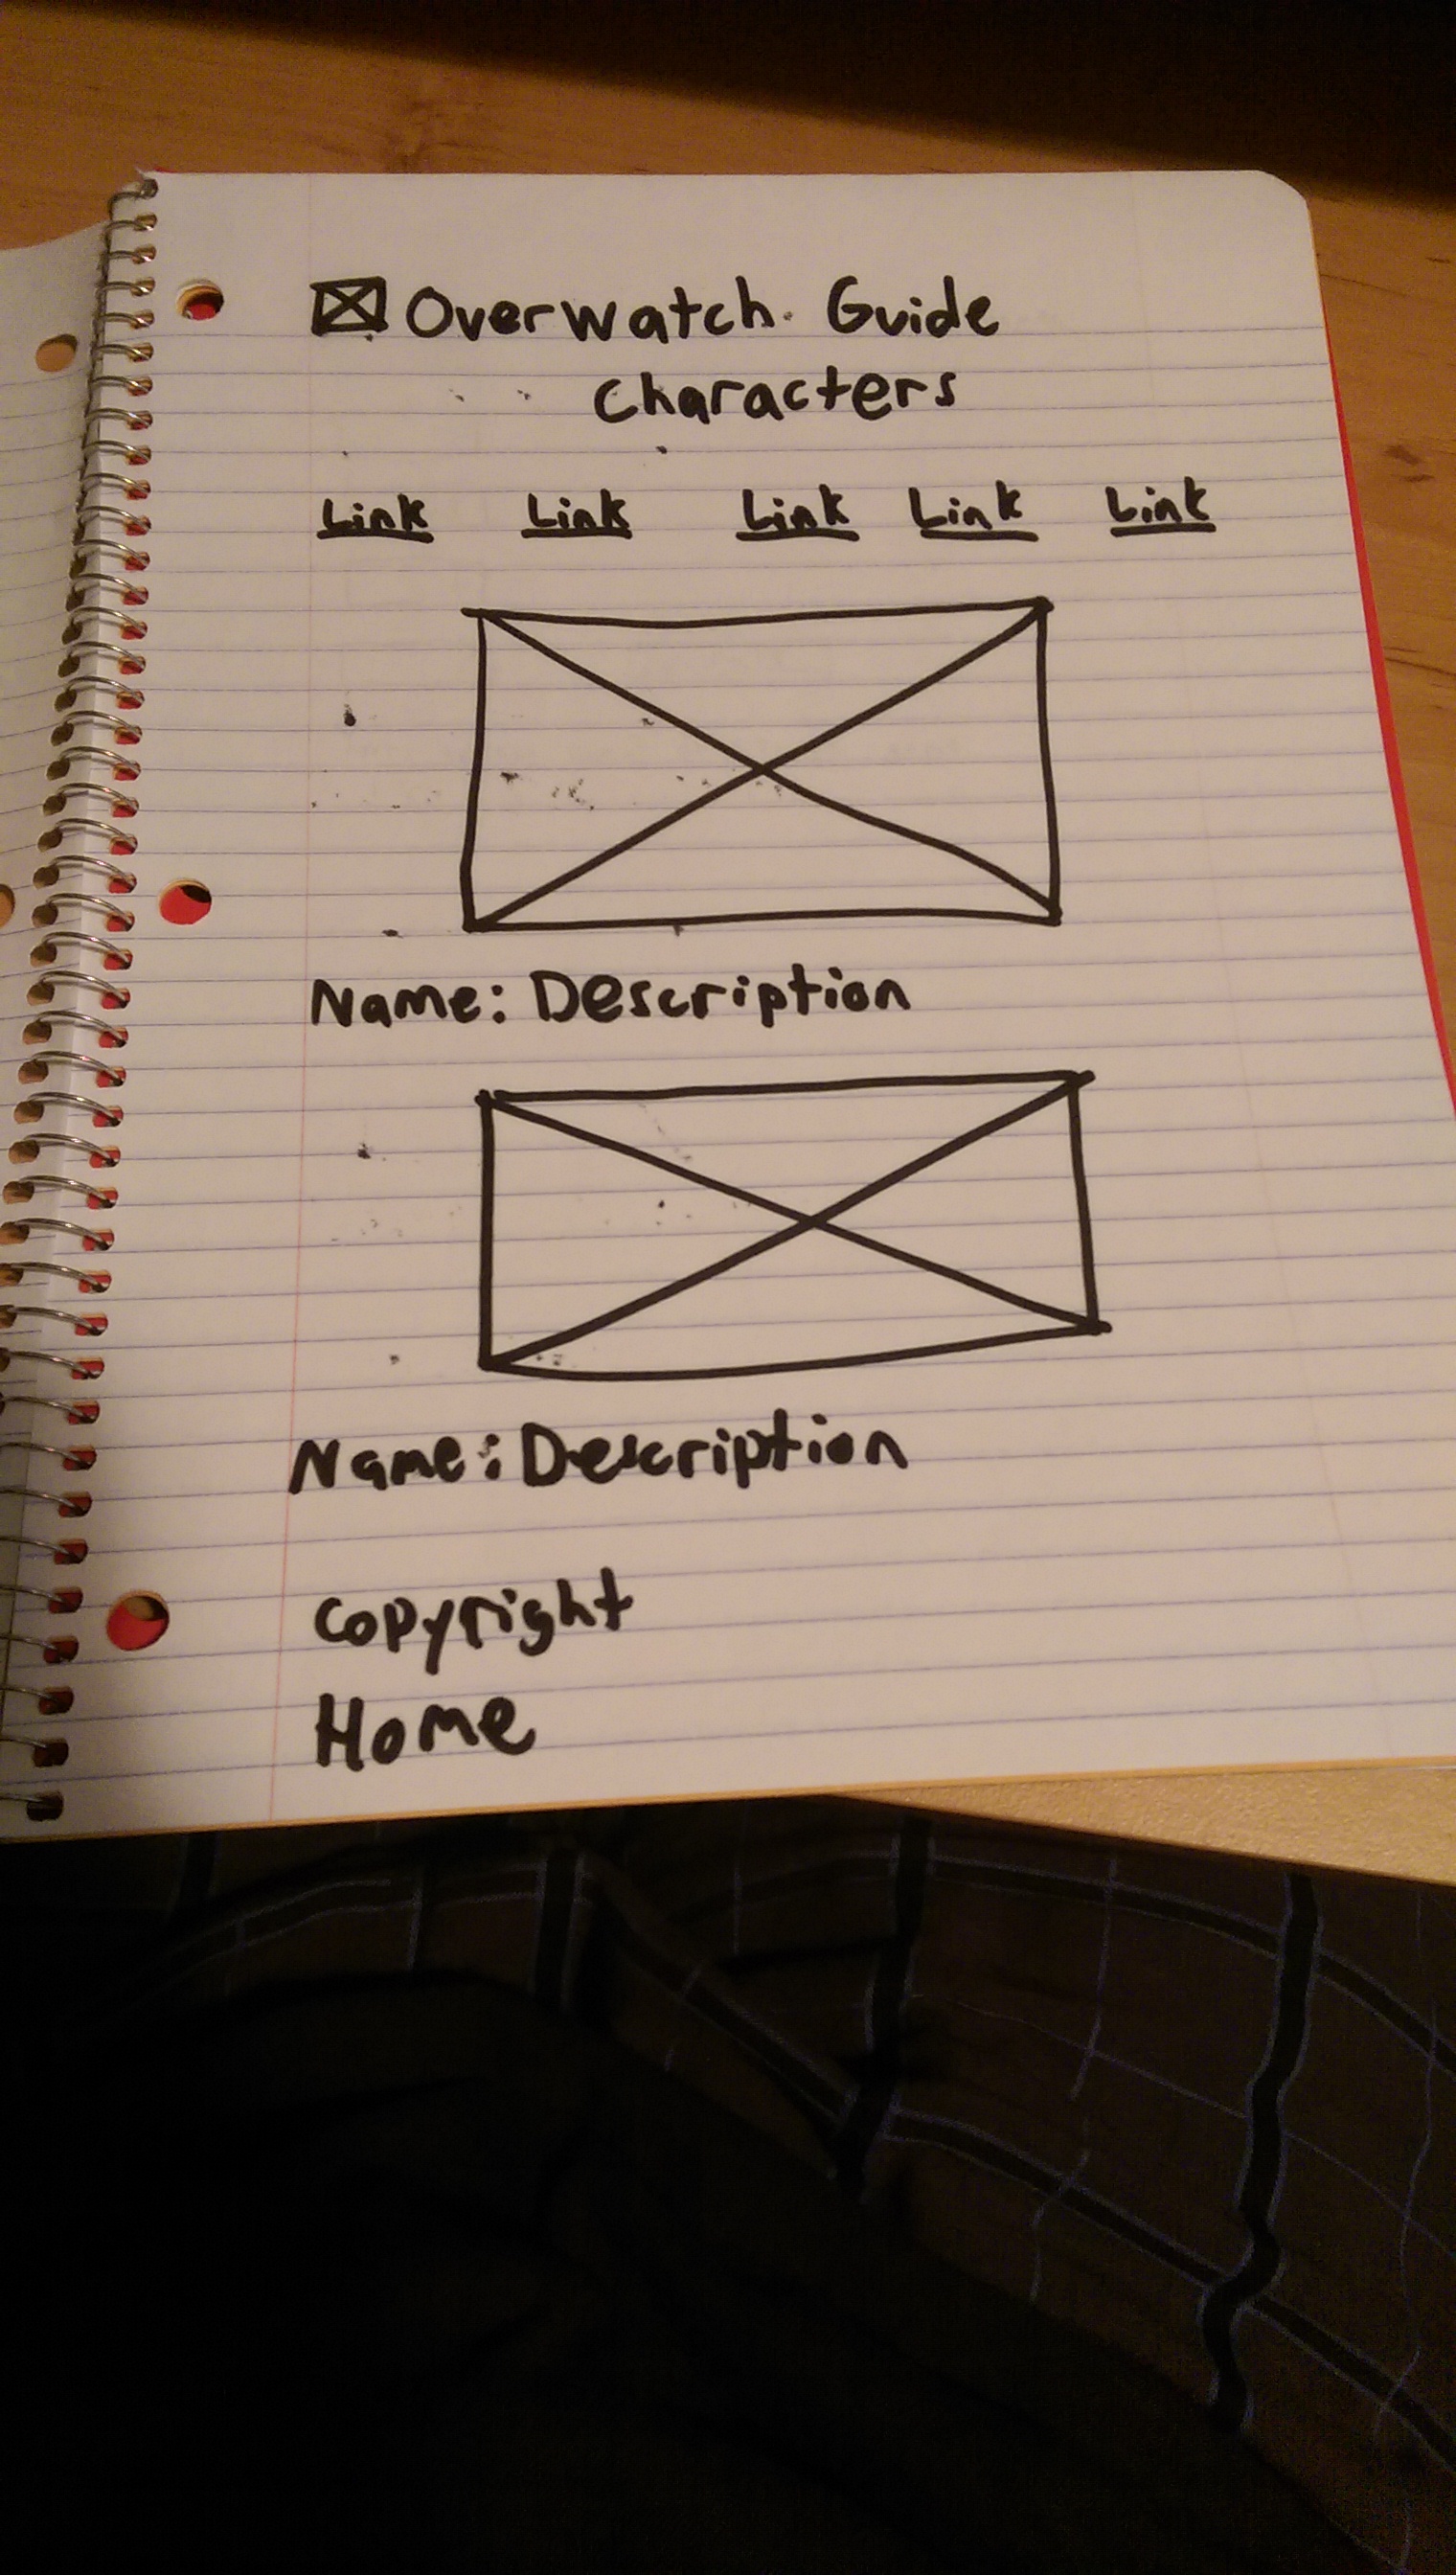 Overwatch Guide
Characters
Link Link Link Link Link
Name: Description
Name: Description
Copyright
Home